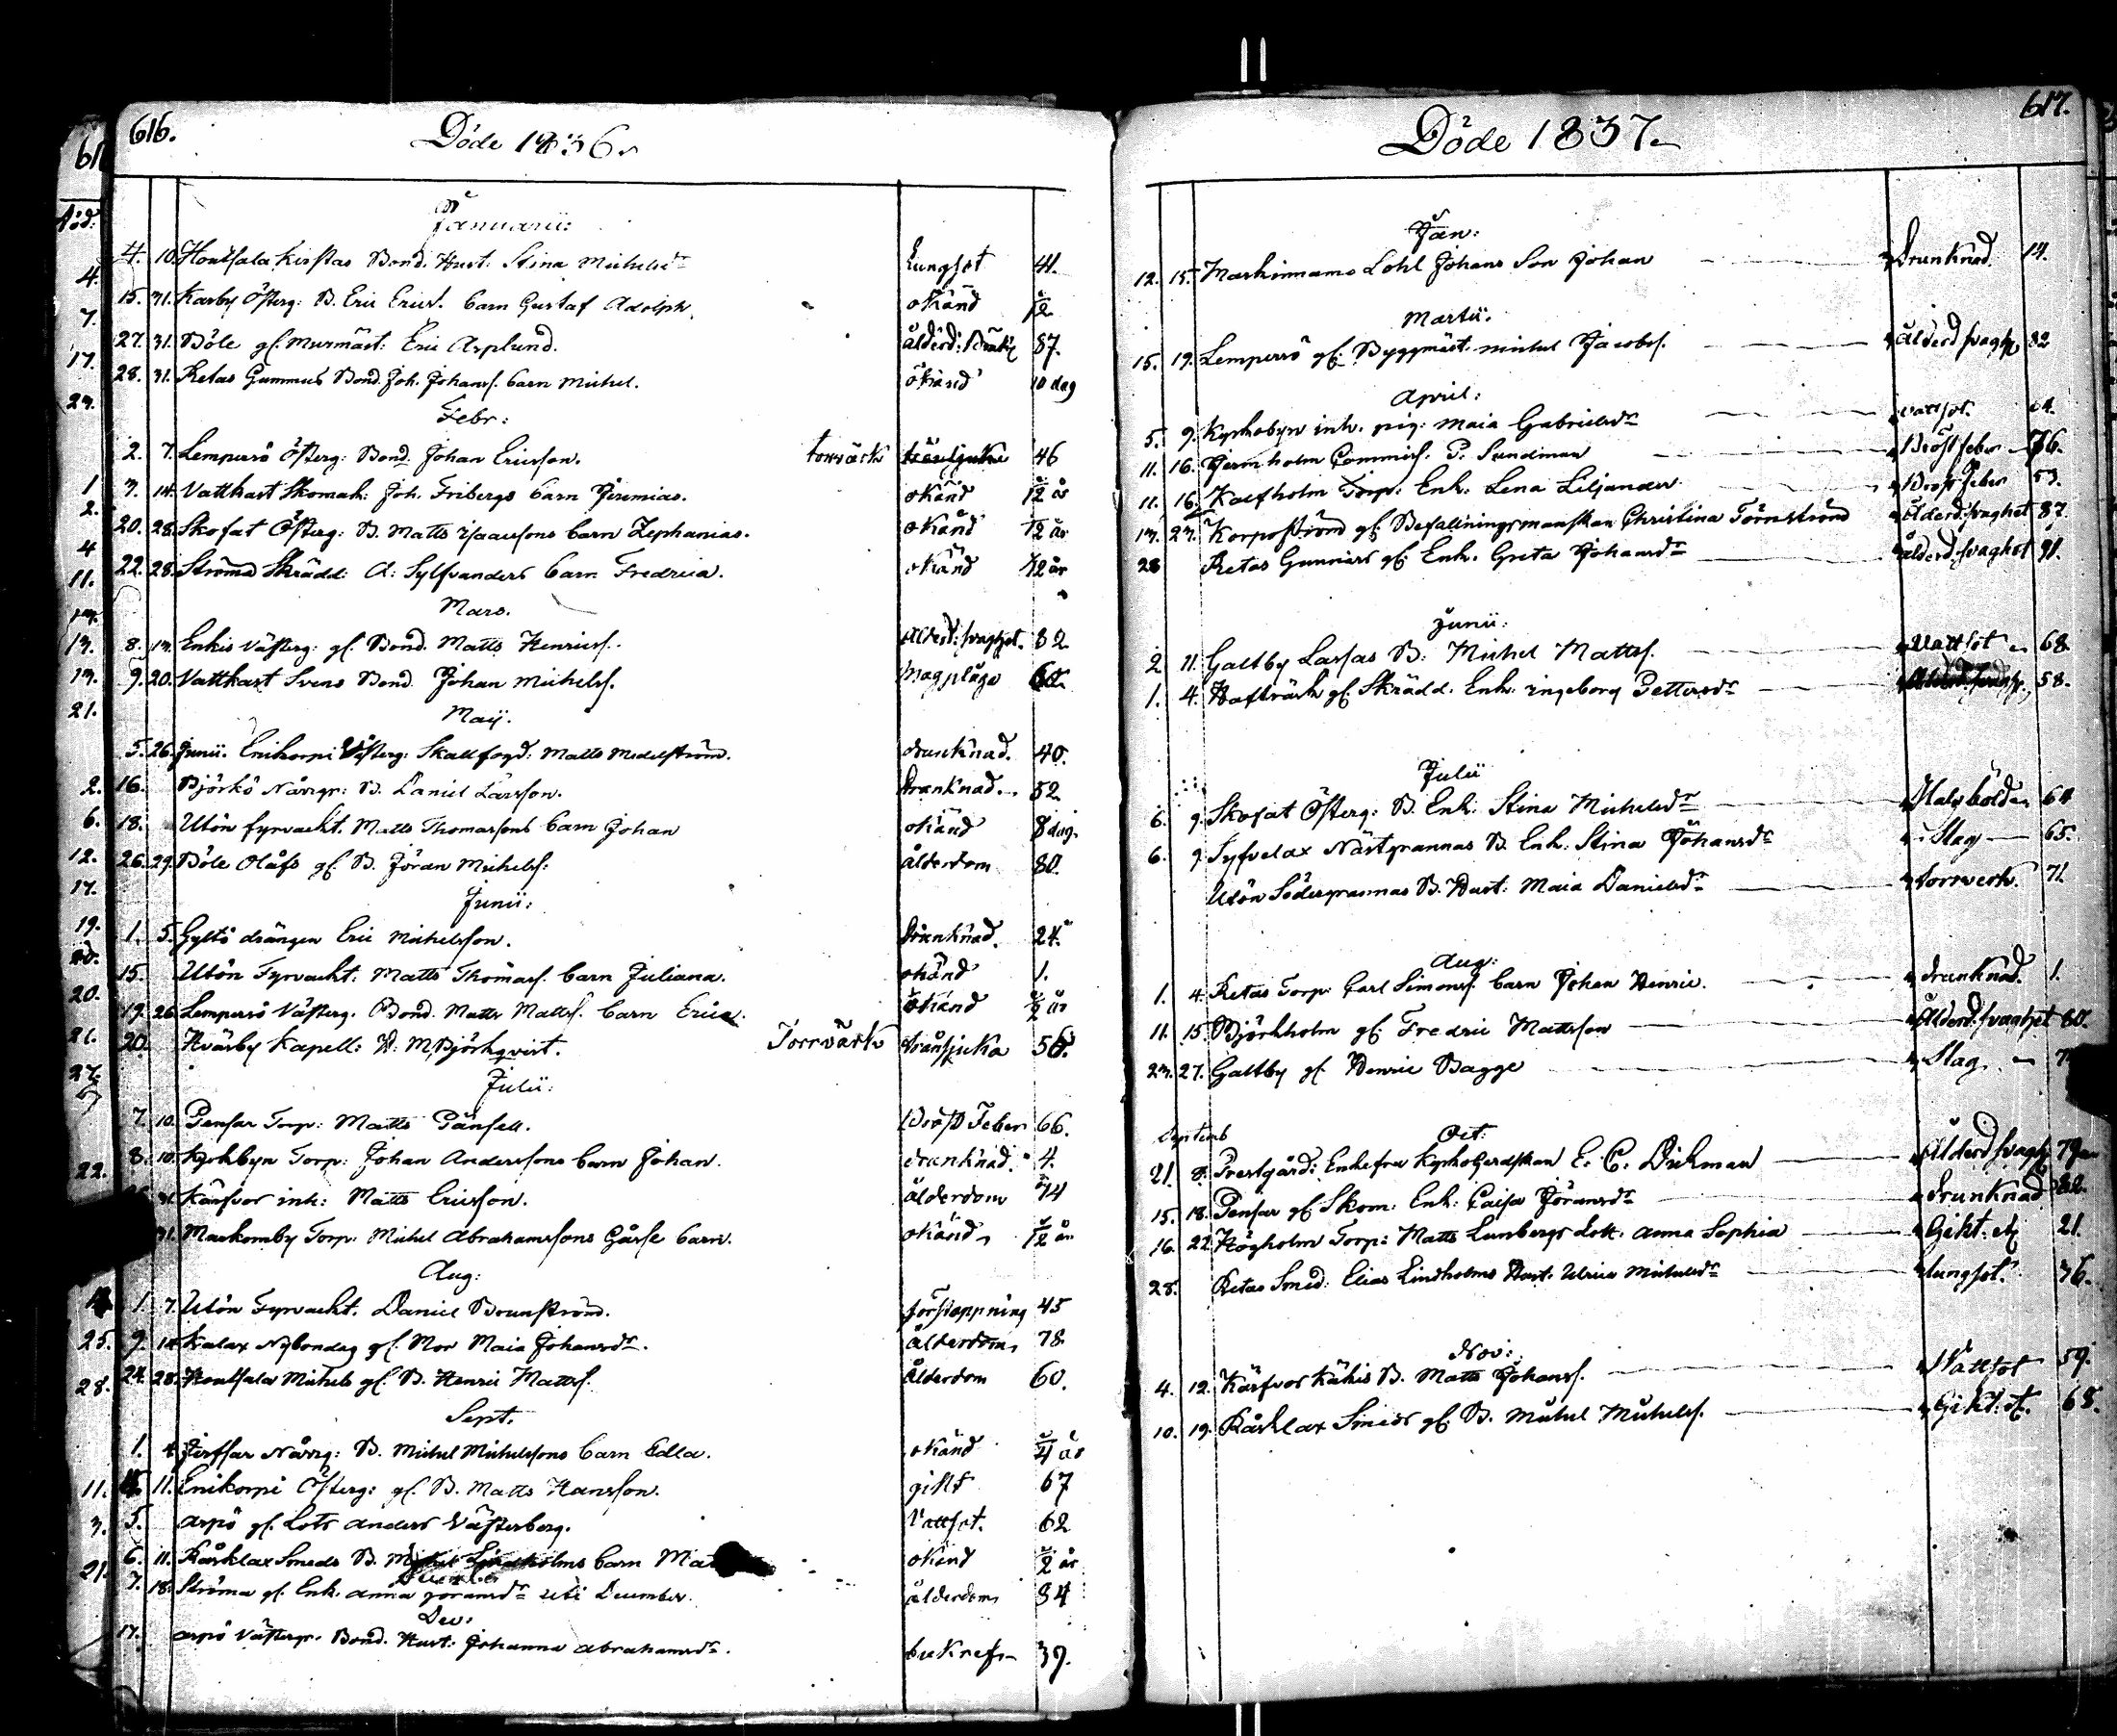 616.
Döde 1836.
Januarii:
4. 10. Houtsala Kirstas Bond. Hust. Stina Michelsdr Lungsot 41.
15. 31. Karby Österg: B. Eric Ericss. barn Gustaf Adolph. okänd
27. 31. Böle gl. Murmäst: Eric Asplund. ålderd: 87.
28. 31. Retas Gummus Bond. Joh. Johanss. barn Michel. okänd 10 dag
Febr:
2. 7. Lempersö Österg: Bond. Johan Ericsson. torrvärk 46
3. 14. Vattkast Skomak: Joh. Fribergs barn Jeremias. okänd
20. 28. Skofat Österg: B. Matts Isaacsons barn Zephanias. okänd
22. 28. Ströma Skrädd: A: Sylfvanders barn Fredrica. okänd
Mars.
8. 13. Enkis Västerg: gl. Bond. Matts Henricss. Ålderd: svaghet. 82
9. 20. Vattkast Svens Bond Johan Michelss. Magplåga
Maij.
5. 26. Junii. Enikorpi Västerg: Skallfogd: Matts Medelström. drunknad. 40.
16. Björkö Nörrgr: B. Daniel Larsson. drunknad. 52
18. Utön fyrvackt. Matts Thomassons barn Johan okänd 8 dag.
26. 29. Böle Olåfs gl. B. Jöran Michelss: ålderdom 80.
Junii:
1. 5. Gyltö drängen Eric Michelsson. drunknad. 24.
15. Utön Fyrvackt. Matts Thomass. barn Juliana. okänd 1.
19. 26. Lempersö Västerg. Bond. Matts Mattss. barn Erica. okänd
20. Hvarby Kapell: H: M. Björkqvist. Torrvärk tränsjuka 56.
Julii:
7. 10. Pensar Torp: Matts Pänsell. Bröst Feber 66.
8. 10. Kyrkbyn Torp: Johan Anderssons barn Johan. drunknad. 4.
31. Kärfvor inh: Matts Ericsson. ålderdom 74
31. Maskomby Torp. Michel Abrahamssons Gåsse barn. okänd
Aug:
1. 7. Utön Fyrvackt. Daniel Brunström. förstoppning 45
9. 14. Kalax Nybondas gl. Mor Maia Johansdr. ålderdom 78
24. 28. Houtsala Michels gl. B. Henric Mattss. ålderdom 60.
Sept.
1. 4. Jerssar Nårrg: B. Michel Michelssons barn Edla. okänd
11. Enikorpi Österg: gl. B. Matts Hansson. gikt 67
5. Arpö gl. Lots Anders Västerberg. Vattsot. 62
6. 11. Kårklax Smeds B. barn okänd
7. 18. Ströma gl. Enk. Anna Joransdr uti December. ålderdom 84
Dec:
17. Arpö Västergr. Bond. Hust: Johanna Abrahamsdr. bukref 39.
617.
Döde 1837.
Jan:
12. 15. Maskinnamo Lohl Johans Son Johan drunknad. 14.
Martii.
15. 19. Lempersö gl. Byggmäst. Michel Jacobss. Ålderd svagh 82
April:
5. 9. Kyrkobyn inh. pig: Maia Gabrielsdr vattsot.
11. 16. Jermholm Commiss. P. Sundman Bröstfeber 76.
11. 16. Kalfholm Torp: Enk: Lena Liljander Bröst Feber 53.
13. 23. Korpoström gl. Befallningsmanskan Christina Törnström Ålderd: svaghet 87.
28 Retas Gunnars gl. Enk. Greta Johansdr ålderd: svaghet 91.
Junii:
2 11. Galtby Lassas B: Michel Mattss. Vattsot 68
1. 4. Hafträsk gl. Skrädd. Enk: Ingeborg Pettersdr 58.
Julii
6. 9. Skofat Österg: B. Enk: Stina Michelsdr Halsböld 64
6. 9. Syfvelax Nästgrannas B. Enk: Stina Johansdr Slag 65.
Utön Södergrannas B. Hust: Maia Danielsdr torrverk. 71.
Aug:
1. 4. Retas Torp: Carl Simonss. barn Johan Henric. drunknad. 1.
11. 15. Björkholm gl. Fredric Mattsson Ålderd: svaghet 80.
23. 27. Galtby gl. Henric Bagge Slag
Septemb Oct:
21. 8. Prestgård: Enkefru Kyrkoherdskan E. C. Dikman Ålderd svagh 79
15. 18. Pensar gl. Skom. Enk: Caisa Jöransdr drunknad
16. 22. Högholm Torp: Matts Lunbergs dott. Anna Sophia Gikt: 21.
28. Retas Smed: Elias Lindholms Hust. Ulrica Michelsdr lungsot. 36.
Nov:
4. 12. Kärfvor Kåkis B. Matts Johanss. Vattsot 59.
10. 19. Kårklax Smeds gl. B. Michel Michelss. Gikt. 68.